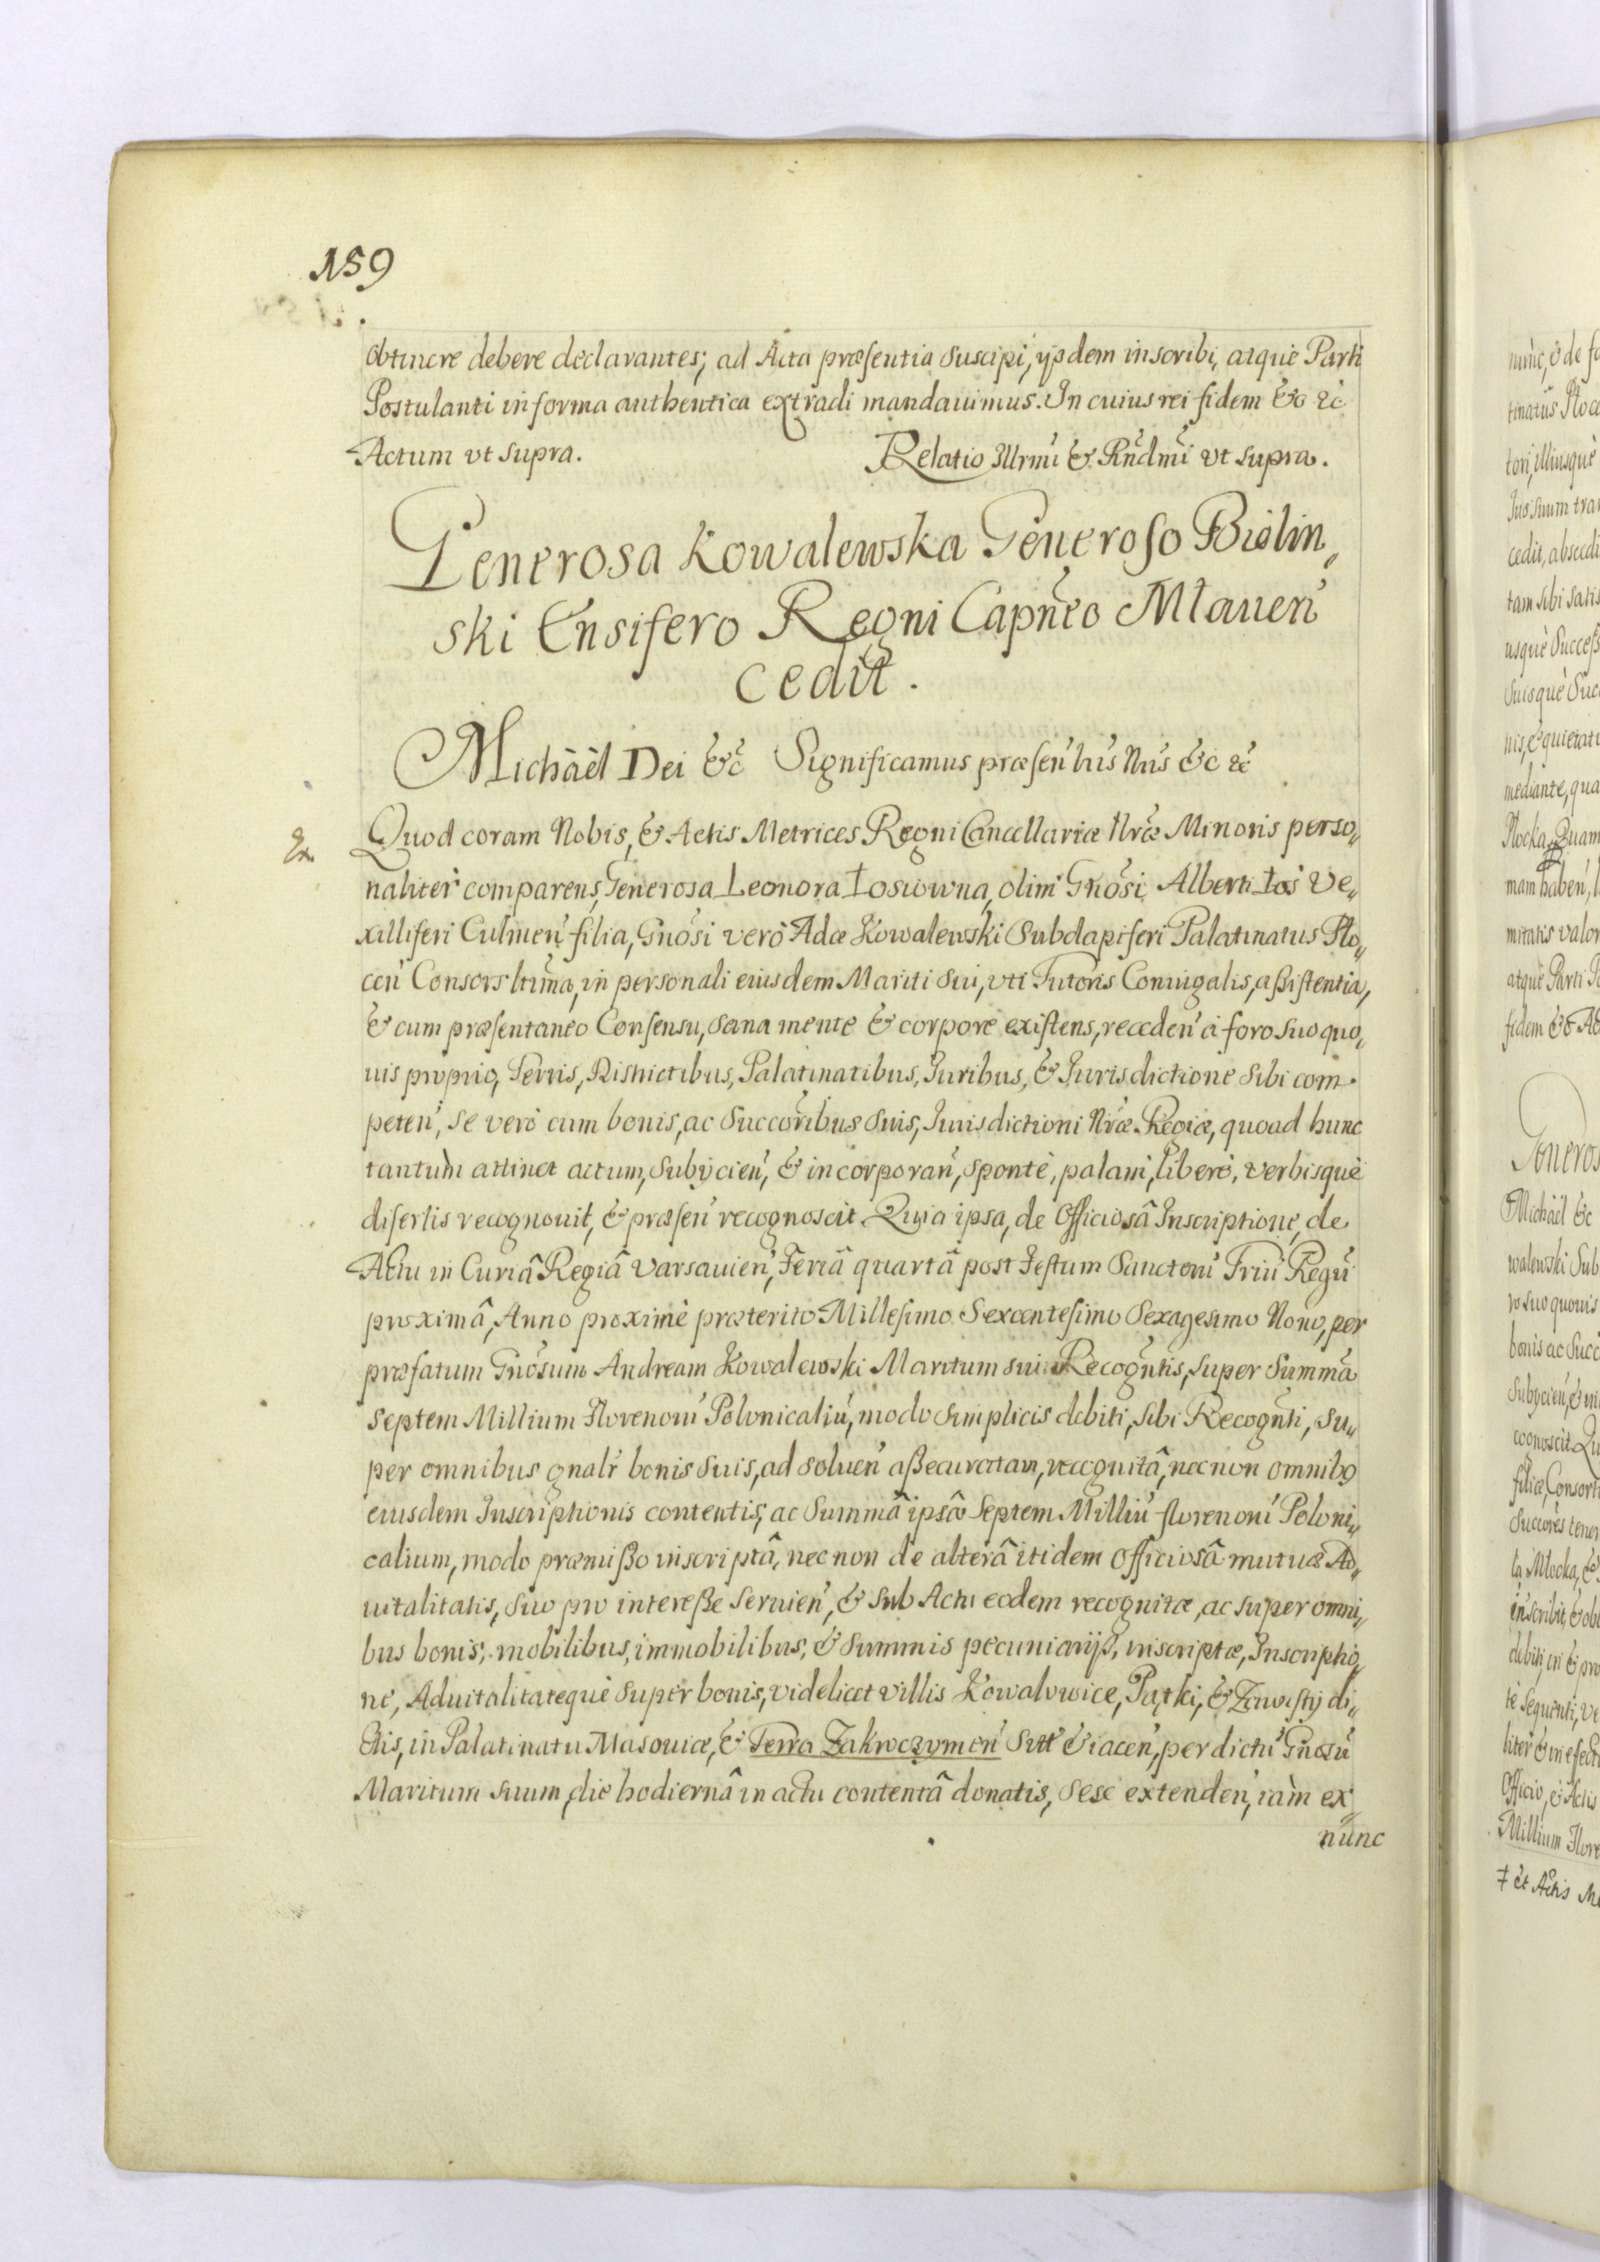 159
obtinere debere declarantes; ad Acta præsentia suscipi, ijsdem inscribi, atque Parti
Postulanti in forma authentica extradi mandauimus. In cuius rei fidem &c &c
Actum vt supra. Relatio Illrmi & Rndmi vt supra.
Generosa Kowalewska Generoso Bielin„
ski Ensifero Regni Capneo Mlauen
cedit.
Michaël Dei &c Significamus præsentibus Nris &c &c
Quod coram Nobis, & Actis Metrices Regni Cancellariæ Nræ Minoris perso„
naliter comparens, Generosa Leonora Łosiowna, olim Gnosi Alberti Łoś Ve„
xilliferi Culmen filia, Gnosi verò Adæ Kowalewski Subdapiferi Palatinatus Plo„
cen Consors ltima, in personali eiusdem Mariti sui, vti Tutoris Coniugalis, assistentia,
& cum præsentaneo Consensu, sana mente & corpore existens, receden à foro suo quo„
uis proprio, Terris, Districtibus, Palatinatibus, Iuribus, & Iurisdictione sibi com„
peten, se verò cum bonis, ac succoribus suis, Iurisdictioni Nræ Regiæ, quoad hunc
tantùm attinet actum, subijcien, & incorporan, spontè, palam, liberè, verbisquè
disertis recognouit, & præsen recognoscit. Quia ipsa, de Officiosâ Inscriptione, de
Actu in Curiâ Regiâ Varsauien, Feriâ quartâ post Festum Sanctoru Triu Regu
proximâ, Anno proximè præterito Millesimo Sexcentesimo Sexagesimo Nono, per
præfatum Gnosum Andream Kowalewski Maritum suu Recogntis, super Summâ
septem Millium Florenoru Polonicaliu, modo simplicis debiti, sibi Recognti, su„
per omnibus gnalr bonis suis, ad soluen assecuratam, recognitâ, necnon omnibq
eiusdem Inscriptionis contentis, ac Summâ ipsâ Septem Milliu florenoru Poloni„
calium, modo præmisso inscriptâ, nec non de alterâ itidem Officiosâ mutuæ Ad„
uitalitatis, suo pro interesse seruien, & sub Actu eodem recognitæ, ac super omni„
bus bonis, mobilibus, immobilibus, & summis pecuniarijs, inscriptæ, Inscriptio„
ne, Aduitalitatequè super bonis, videlicet villis Kowalowice, Pątki, & di„
ctis, in Palatinatu Masouiæ, & Terra Zakroczymen sitt & iacen, per dictu Gnosu
Maritum suum, die hodiernâ in actu contentâ donatis, sese extenden, iàm ex„
nunc